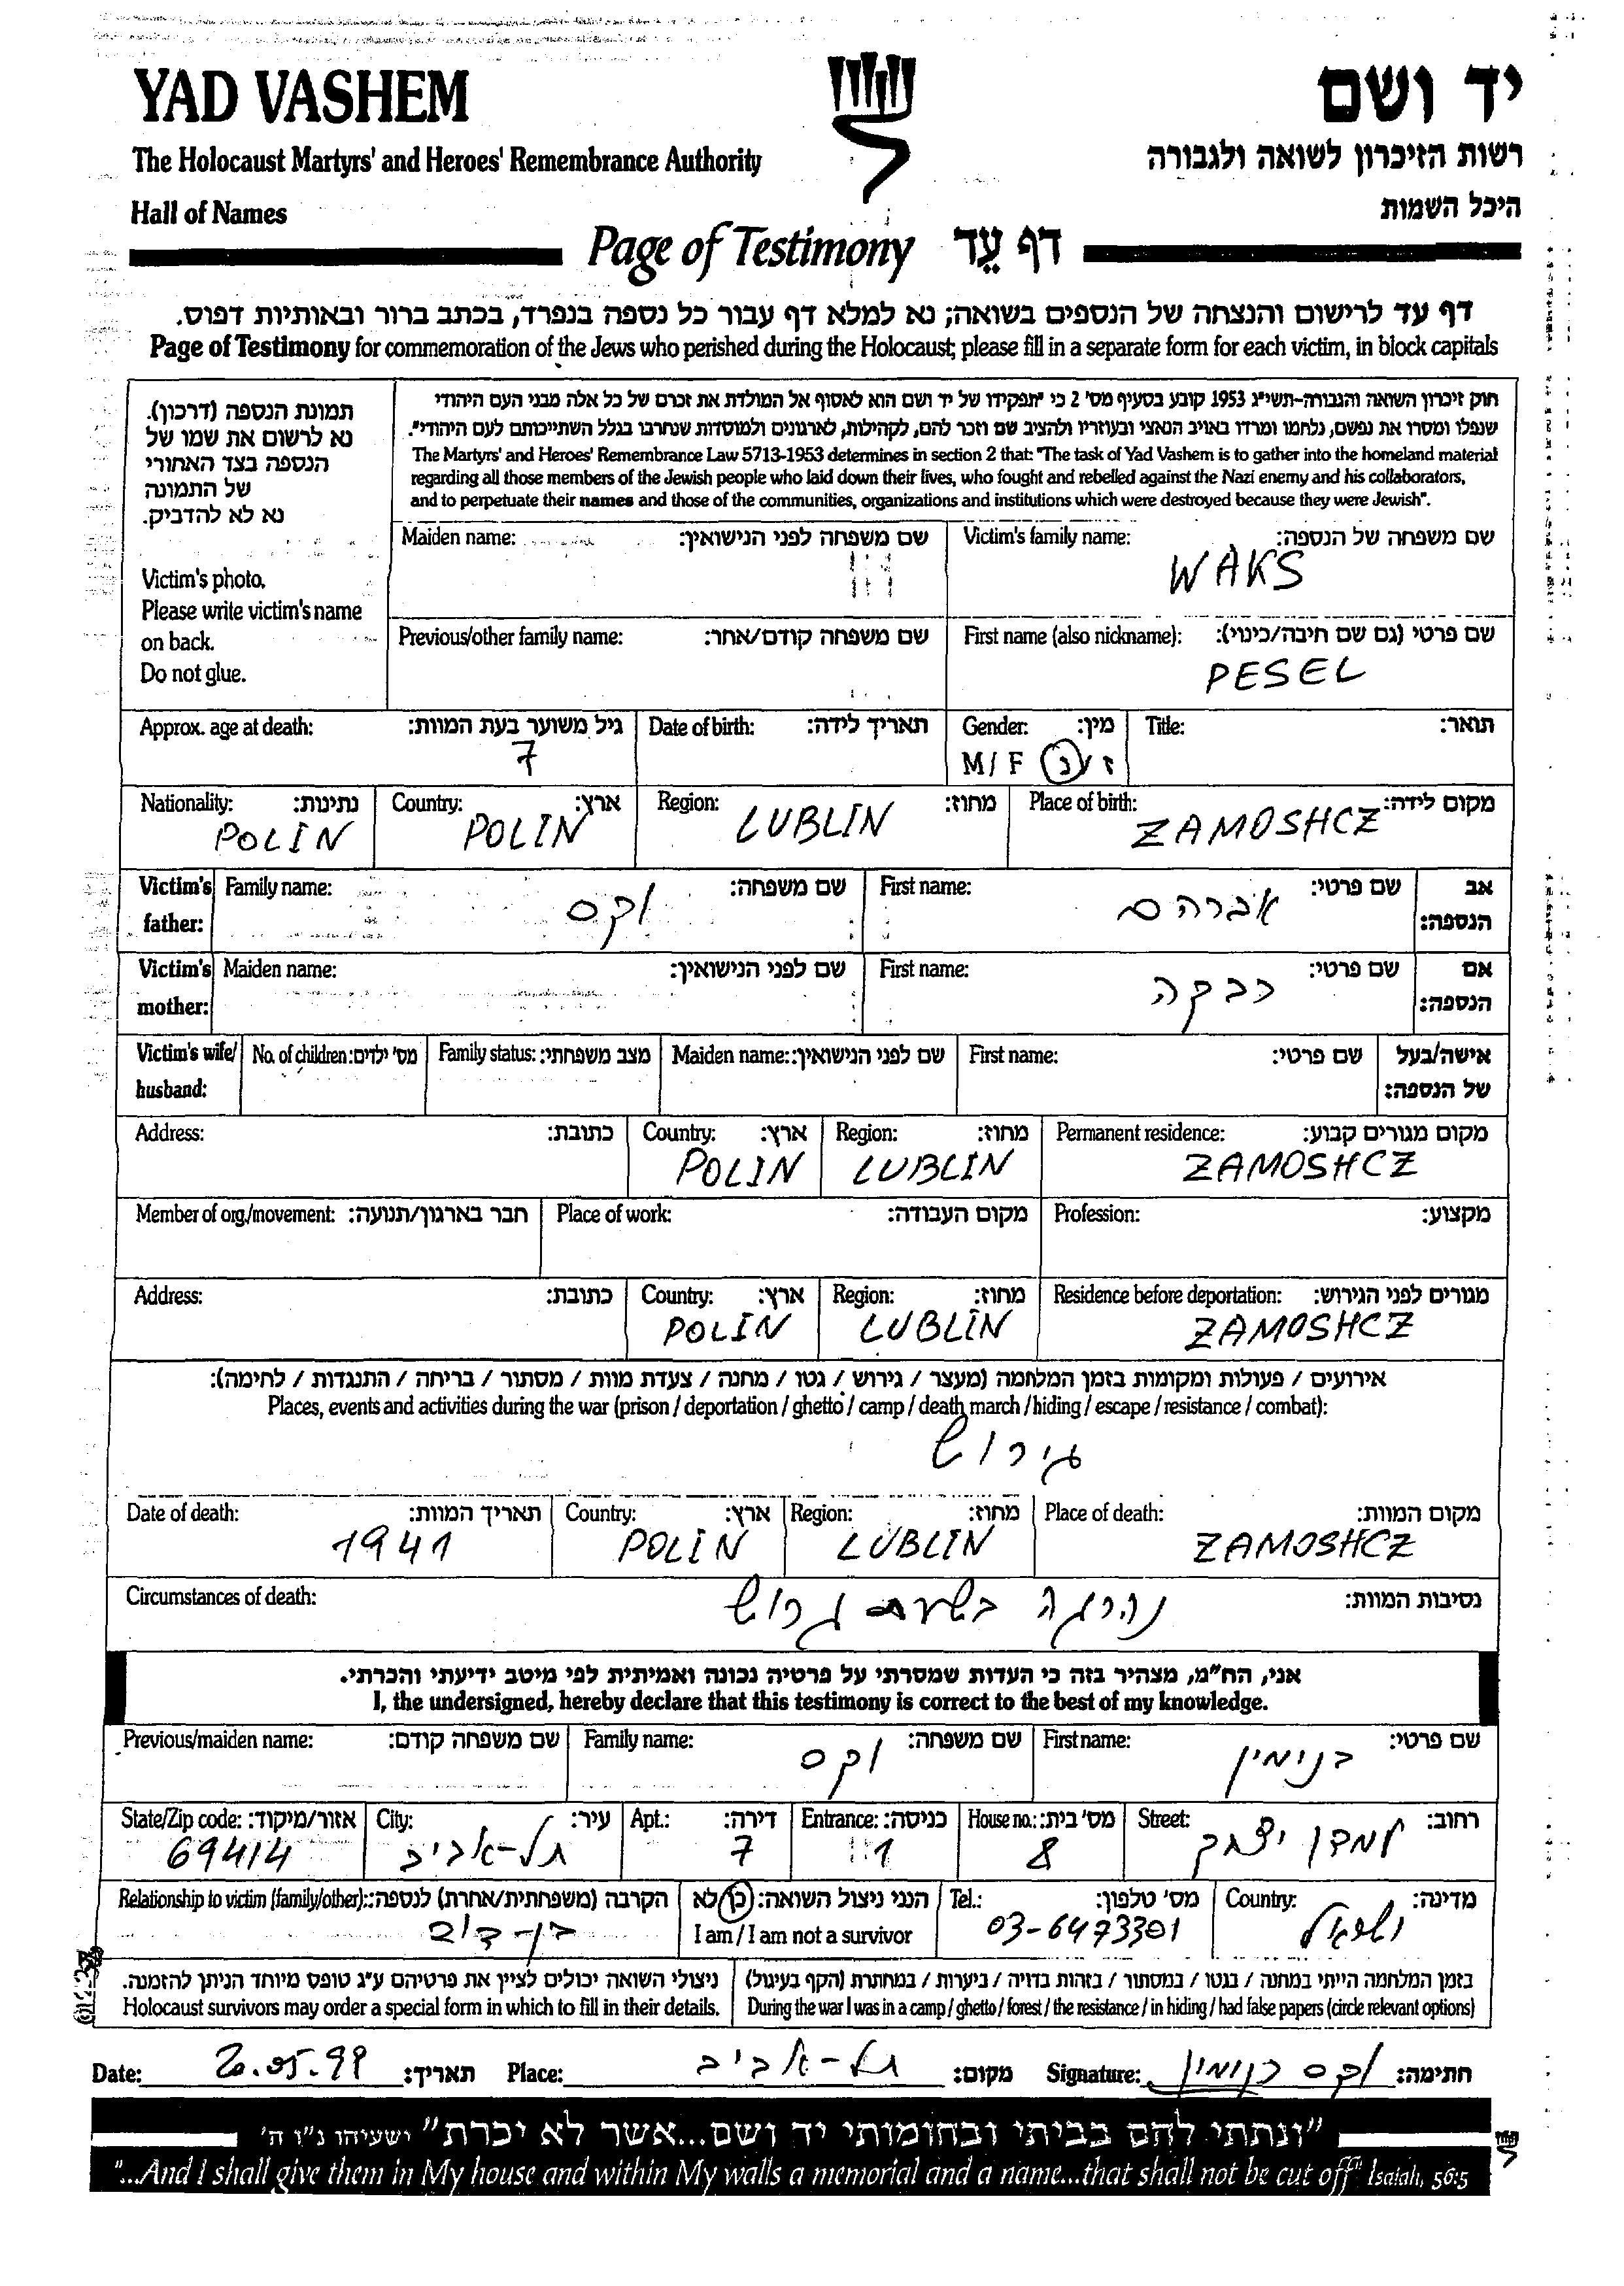 YAD VASHEM
יד ושם
The Holocaust Martyrs' and Heroes' Remembrance Authority
רשות הזיכרון לשואה ולגבורה
Hall of Names
היכל השמות
Page of Testimony דף עֵד
דף עד לרישום והנצחה של הנספים בשואה; נא למלא דף עבור כל נספה בנפרד, בכתב ברור ובאותיות דפוס.
Page of Testimony for commemoration of the Jews who perished during the Holocaust; please fill in a separate form for each victim, in block capitals
תמונת הנספה (דרכון).
נא לרשום את שמו של
הנספה בצד האחורי
של התמונה
נא לא להדביק.
Victim's photo.
Please write victim's name
on back.
Do not glue.
חוק זיכרון השואה והגבורה-תשי"ג 1953 קובע בסעיף מס' 2 כי "תפקידו של יד ושם הוא לאסוף אל המולדת את זכרם של כל אלה מבני העם היהודי
שנפלו ומסרו את נפשם, נלחמו ומרדו באויב הנאצי ובעוזריו ולהציב שם וזכר להם, לקהילות, לארגונים ולמוסדות שנחרבו בגלל השתייכותם לעם היהודי".
The Martyrs' and Heroes' Remembrance Law 5713-1953 determines in section 2 that: "The task of Yad Vashem is to gather into the homeland material
regarding all those members of the Jewish people who laid down their lives, who fought and rebelled against the Nazi enemy and his collaborators,
and to perpetuate their names and those of the communities, organizations and institutions which were destroyed because they were Jewish".
Maiden name: שם משפחה לפני הנישואין: Victim's family name: שם משפחה של הנספה:
WAKS
Previous/other family name: שם משפחה קודם/אחר: First name (also nickname): שם פרטי (גם שם חיבה/כינוי):
PESEL
Approx. age at death: גיל משוער בעת המוות: Date of birth: תאריך לידה: Gender: מין: Title: תואר:
7 M/F ז/נ
Nationality: נתינות: Country: ארץ: Region: מחוז: Place of birth: מקום לידה:
POLIN POLIN LUBLIN ZAMOSHCZ
Victim's father: Family name: שם משפחה: First name: שם פרטי: אב הנספה:
וקס אברהם
Victim's mother: Maiden name: שם לפני הנישואין: First name: שם פרטי: אם הנספה:
רבקה
Victim's wife/husband: No. of children: מס' ילדים: Family status: מצב משפחתי: Maiden name: שם לפני הנישואין: First name: שם פרטי: אישה/בעל של הנספה:
Address: כתובת: Country: ארץ: Region: מחוז: Permanent residence: מקום מגורים קבוע:
POLIN LUBLIN ZAMOSHCZ
Member of org./movement: חבר בארגון/תנועה: Place of work: מקום העבודה: Profession: מקצוע:
Address: כתובת: Country: ארץ: Region: מחוז: Residence before deportation: מגורים לפני הגירוש:
POLIN LUBLIN ZAMOSHCZ
אירועים / פעולות ומקומות בזמן המלחמה (מעצר / גירוש / גטו / מחנה / צעדת מוות / מסתור / בריחה / התנגדות / לחימה):
Places, events and activities during the war (prison / deportation / ghetto / camp / death march / hiding / escape / resistance / combat):
גירוש
Date of death: תאריך המוות: Country: ארץ: Region: מחוז: Place of death: מקום המוות:
1941 POLIN LUBLIN ZAMOSHCZ
Circumstances of death: נסיבות המוות:
נהרגה בשעת גרוש
אני, הח"מ, מצהיר בזה כי העדות שמסרתי על פרטיה נכונה ואמיתית לפי מיטב ידיעתי והכרתי.
I, the undersigned, hereby declare that this testimony is correct to the best of my knowledge.
Previous/maiden name: שם משפחה קודם: Family name: שם משפחה: First name: שם פרטי:
וקס בנימין
State/Zip code: אזור/מיקוד: City: עיר: Apt.: דירה: Entrance: כניסה: House no.: מס' בית: Street: רחוב:
69414 תל-אביב 7 1 8 למדן יצחק
Relationship to victim (family/other): הקרבה (משפחתית/אחרת) לנספה: הנני ניצול השואה: כן/לא Tel.: מס' טלפון: Country: מדינה:
בן-דוד I am / I am not a survivor 03-6473301 ישראל
ניצולי השואה יכולים לציין את פרטיהם ע"ג טופס מיוחד הניתן להזמנה. בזמן המלחמה הייתי במחנה / בגטו / במסתור / בזהות בדויה / ביערות / במחתרת (הקף בעיגול)
Holocaust survivors may order a special form in which to fill in their details. During the war I was in a camp / ghetto / forest / the resistance / in hiding / had false papers (circle relevant options)
Date: 20.05.99 תאריך: Place: תל-אביב מקום: Signature: וקס בנימין חתימה:
"ונתתי להם בביתי ובחומותי יד ושם...אשר לא יכרת" ישעיהו נ"ו ה'
"...And I shall give them in My house and within My walls a memorial and a name...that shall not be cut off" Isaiah, 56:5